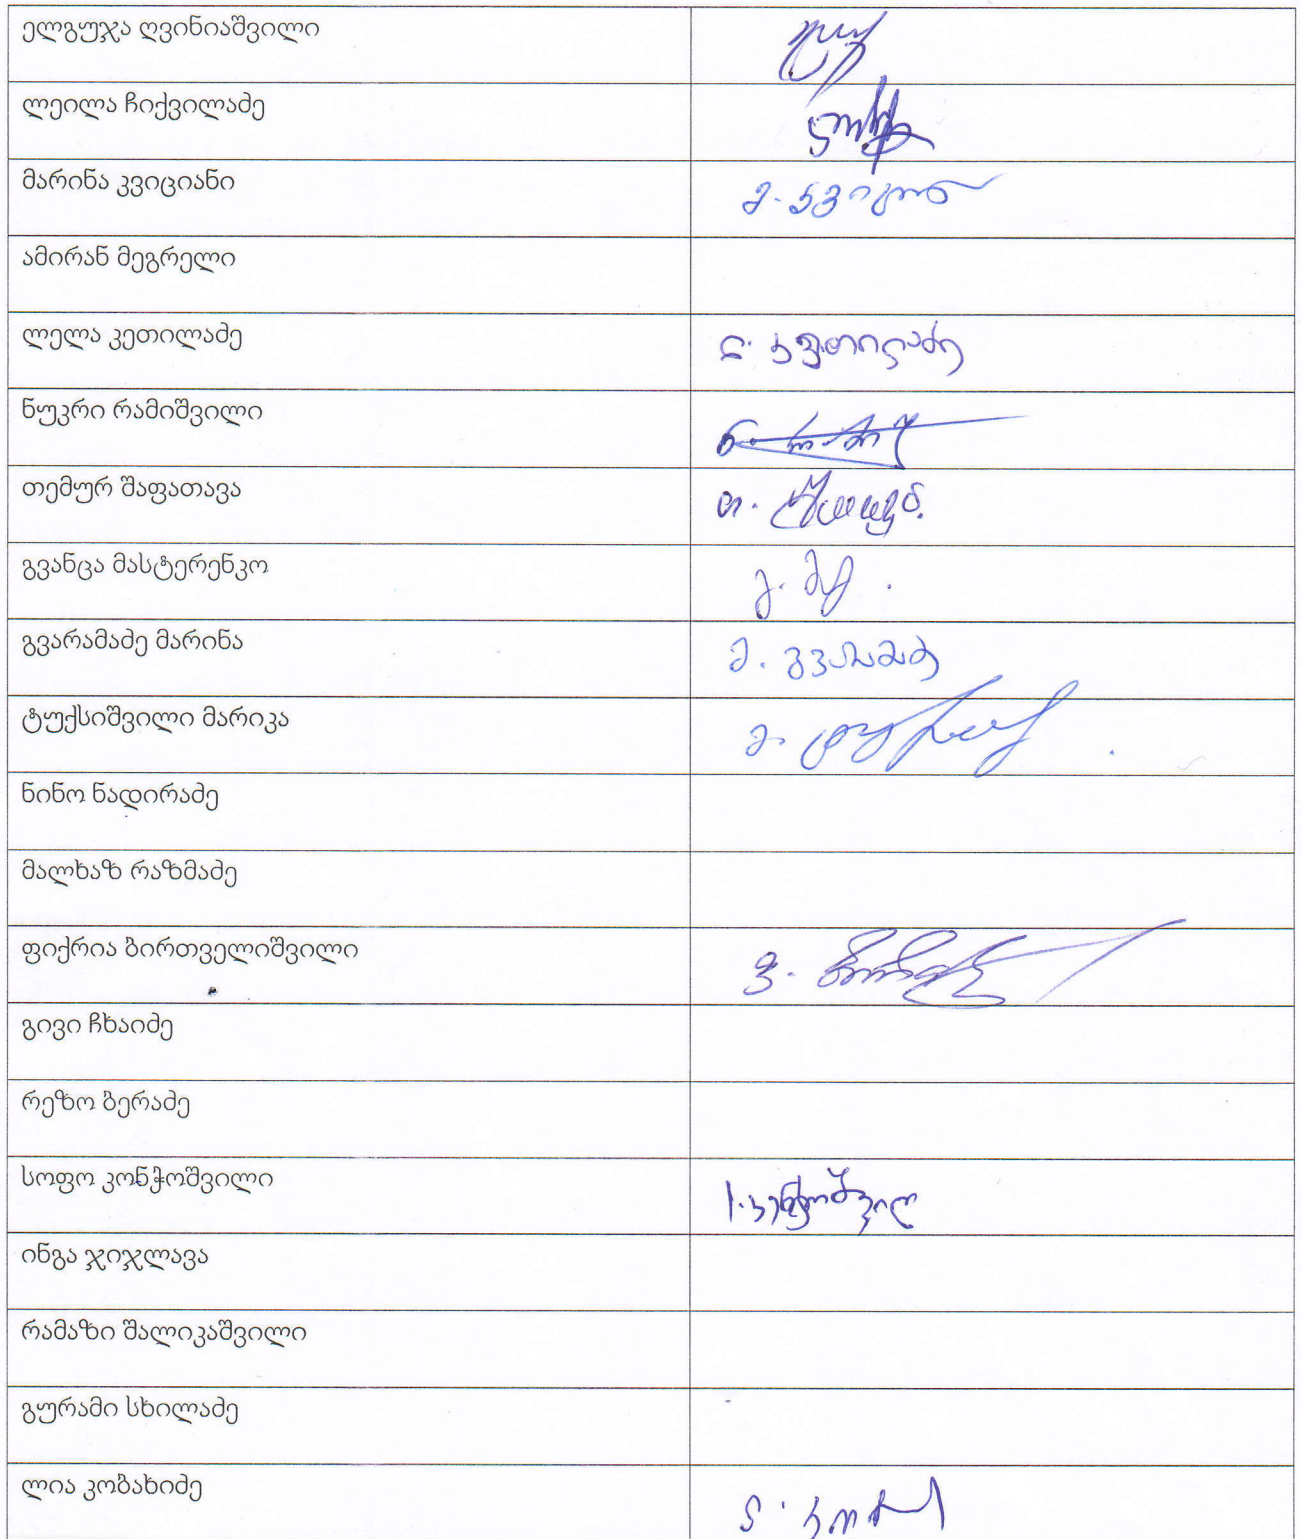 ელგუჯა ღვინიაშვილი
ლეილა ჩიქვილაძე
მარინა კვიციანი
მ. კვიციან
ამირან მეგრელი
ლელა კეთილაძე
ლ. კეთილაძე
ნუკრი რამიშვილი
თემურ შაფათავა
თ.
გვანცა მასტერენკო
გ.
გვარამაძე მარინა
მ. გვარამაძ
ტუქსიშვილი მარიკა
მ.
ნინო ნადირაძე
მალხაზ რაზმაძე
ფიქრია ბირთველიშვილი
ფ.
გივი ჩხაიძე
რეზო ბერაძე
სოფო კონჭოშვილი
ს. კონჭოშვილ
ინგა ჯიჯლავა
რამაზი შალიკაშვილი
გურამი სხილაძე
ლია კობახიძე